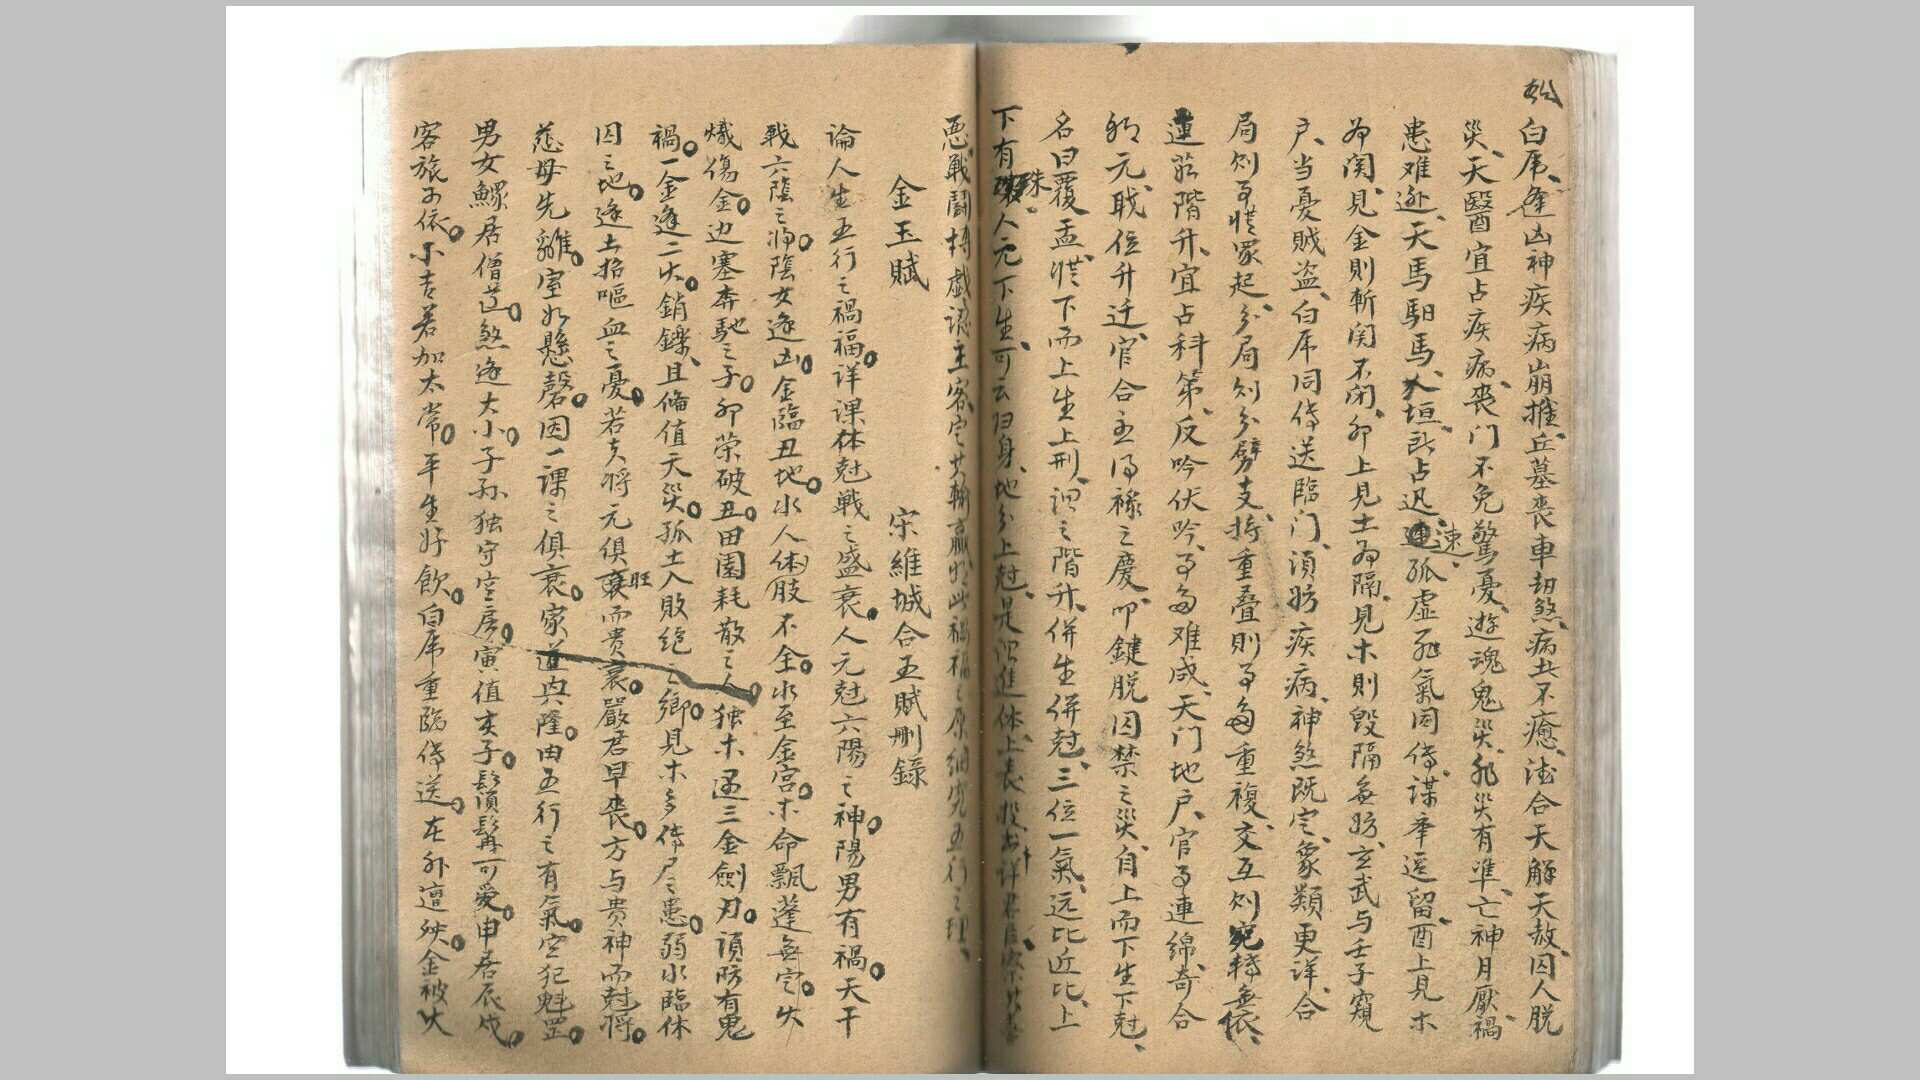 白虎逢凶神疾病崩摧丘墓喪車劫煞病北不癒德合天解天赦囚人脱
災天醫宜占疾病喪门不免驚憂遊魂鬼災飛災有準亡神月厭禍
患难逃天馬馹馬入垣訊占迅速孤虛死氣同傳謀卒迟留酉上見木
為関見金則斬関不闭卯上見土為隔見木則毀隔無妨玄武与壬子窺
户当憂贼盗白虎同传送臨门須妨疾病神煞既定象類更详合
局则事从眾起分局则分劈支持重叠則事多重複交互则宛轉無依
蓮茹階升宜占科第反吟伏吟事多难成天门地户官事連綿奇合
元戢位升迁官合主得禄之慶叩鍵脱囚禁之災自上而下生下尅
名曰覆盂从下而上生上刑謂之階升併生併尅三位一氣远比近比上
下有殊人元下生可云归身地分上尅是謂進体上表
惡戰闘打戲認主客定其輸贏於此禍福之原細究五行之理
金玉賦 宋維城合玉賦刪錄
論人生五行之禍福详課体尅戰之盛衰人元尅六陽之神陽男有禍天干
戰六陰之將陰女逢凶金臨丑地水人体肢不全水至金宮木命飄蓬無定火
熾傷金边塞奔馳之子卯荣破丑田園耗散之人独木遇三金劍刃須防有鬼
禍一金逢二火銷鑠且偹值天災孤土入败绝之鄉見木多传尸之患弱水臨休
囚之地逢土招嘔血之憂若夫將元俱旺而贵衰嚴君早喪方与贵神而尅將
慈母先離室如懸磬因一課之俱衰家道興隆由五行之有氣空犯魁罡
男女鰥居僧道煞逢大小子孙独守空房寅值亥子鬚髯可愛申居辰戌
客旅子依不吉若加太常平生好飲白虎重臨传送在外遭殃金被火